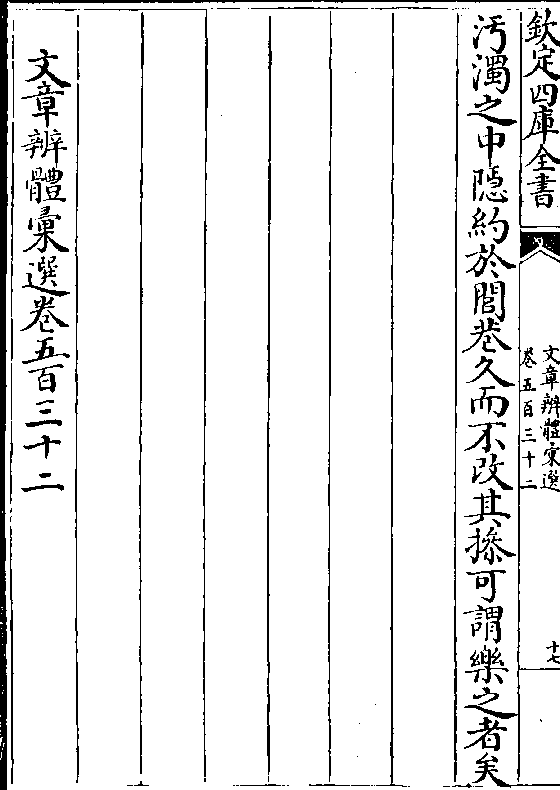 欽定四庫全書
文章辨體彚選
卷五百三十二
十七
汚濁之中隱約於閭巷久而不改其操可謂樂之者矣
文章辨體彚選卷五百三十二